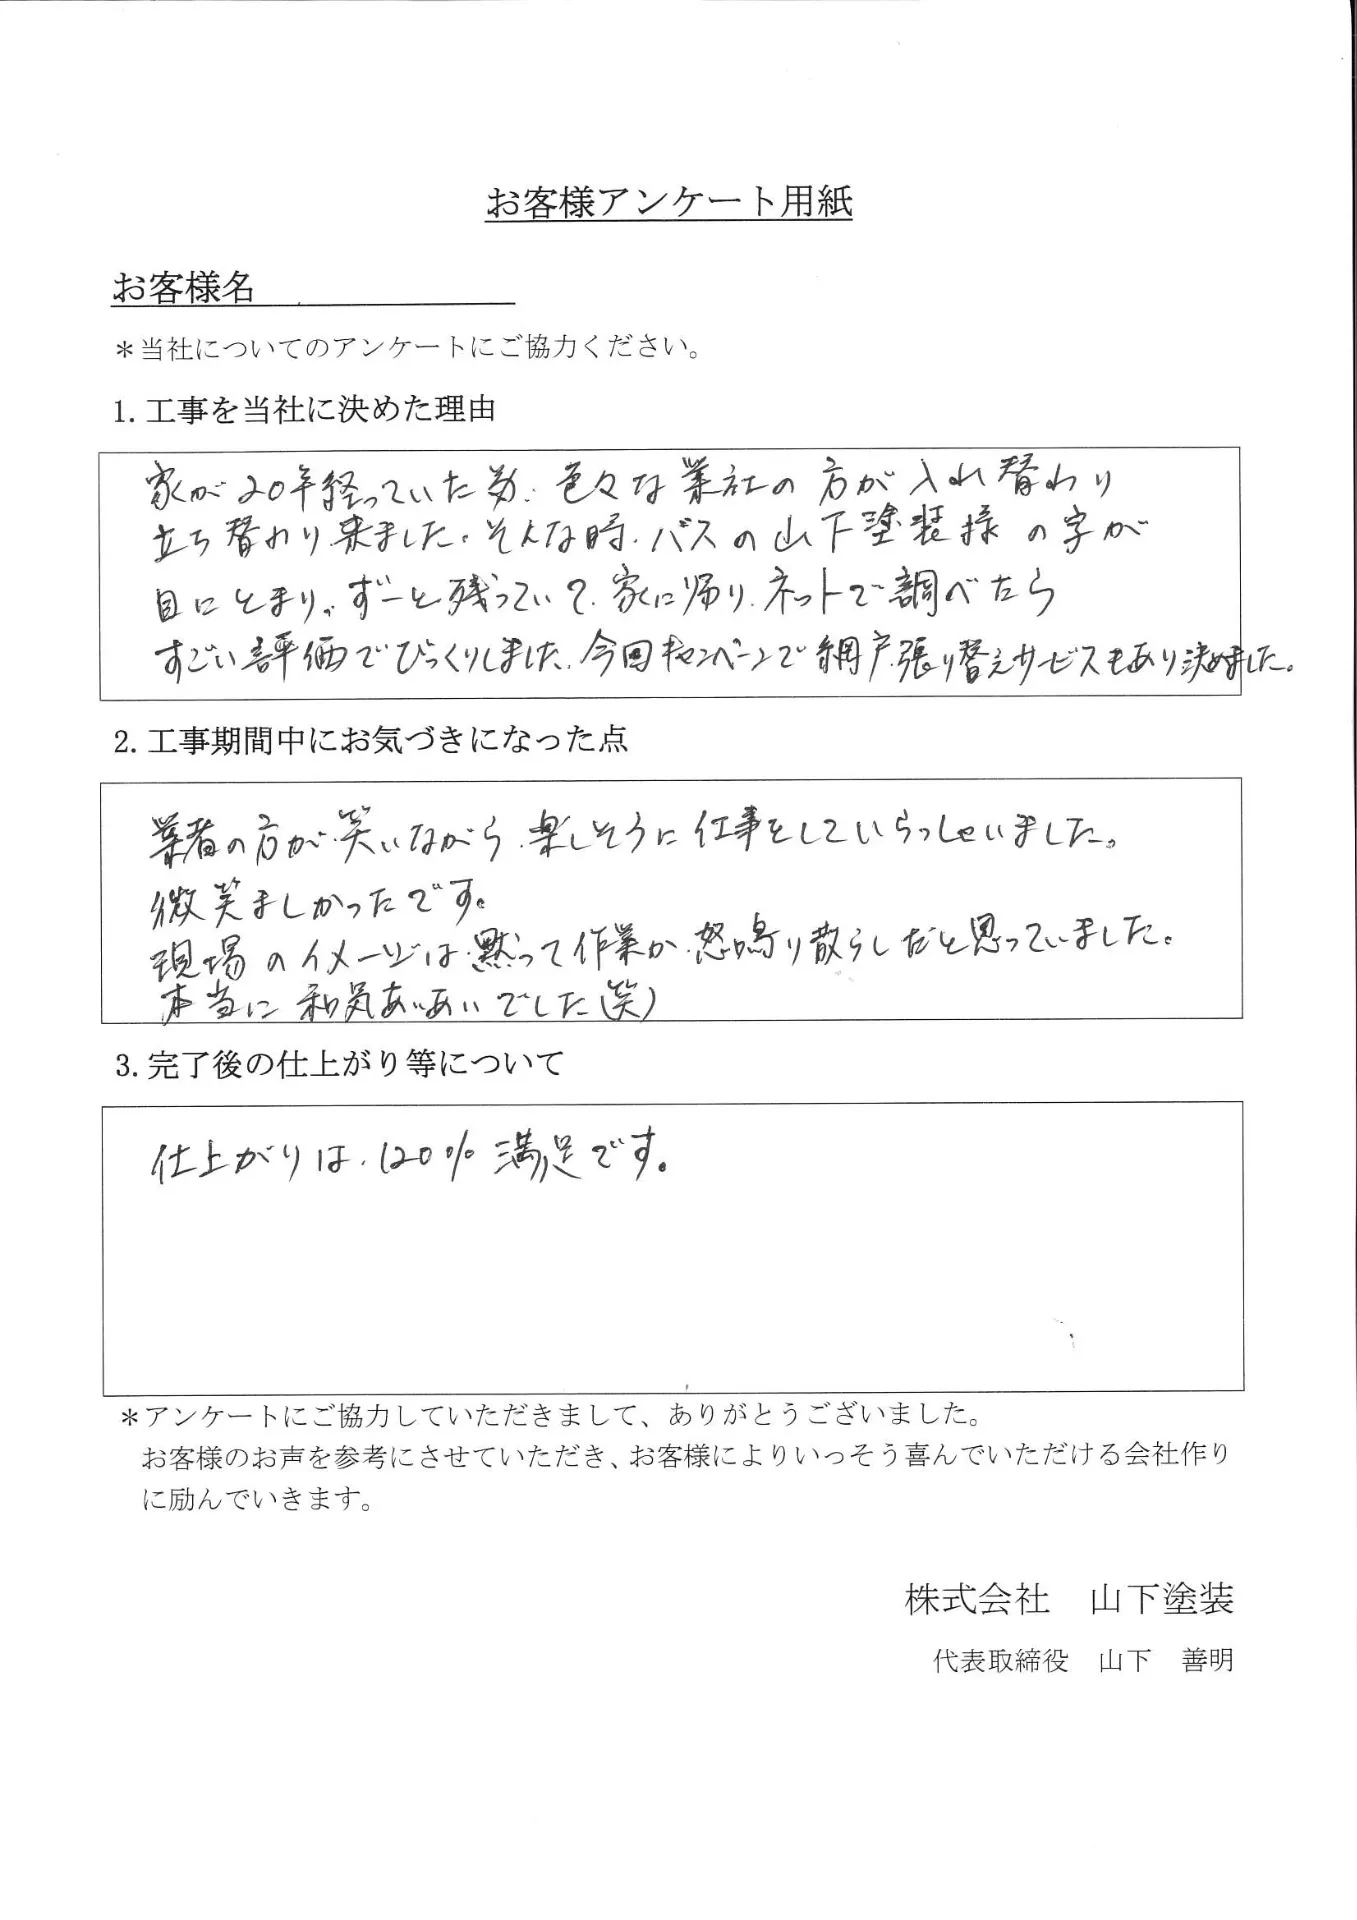 お客様アンケート用紙
お客様名
＊当社についてのアンケートにご協力ください。
1. 工事を当社に決めた理由
家が20年経っていた為、色々な業社の方が入れ替わり
立ち替わり来ました。そんな時、バスの山下塗装様の字が
目にとまり、ずーと残っていて、家に帰り、ネットで調べたら
すごい評価でびっくりしました。今回キャンペーンで網戸張り替えサービスもあり決めました。
2. 工事期間中にお気づきになった点
業者の方が、笑いながら、楽しそうに仕事をしていらっしゃいました。
微笑ましかったです。
現場のイメージは、黙って作業か、怒鳴り散らしだと思っていました。
本当に和気あいあいでした(笑)
3. 完了後の仕上がり等について
仕上がりは、120％満足です。
＊アンケートにご協力していただきまして、ありがとうございました。
お客様のお声を参考にさせていただき、お客様によりいっそう喜んでいただける会社作り
に励んでいきます。
株式会社　山下塗装
代表取締役　山下　善明